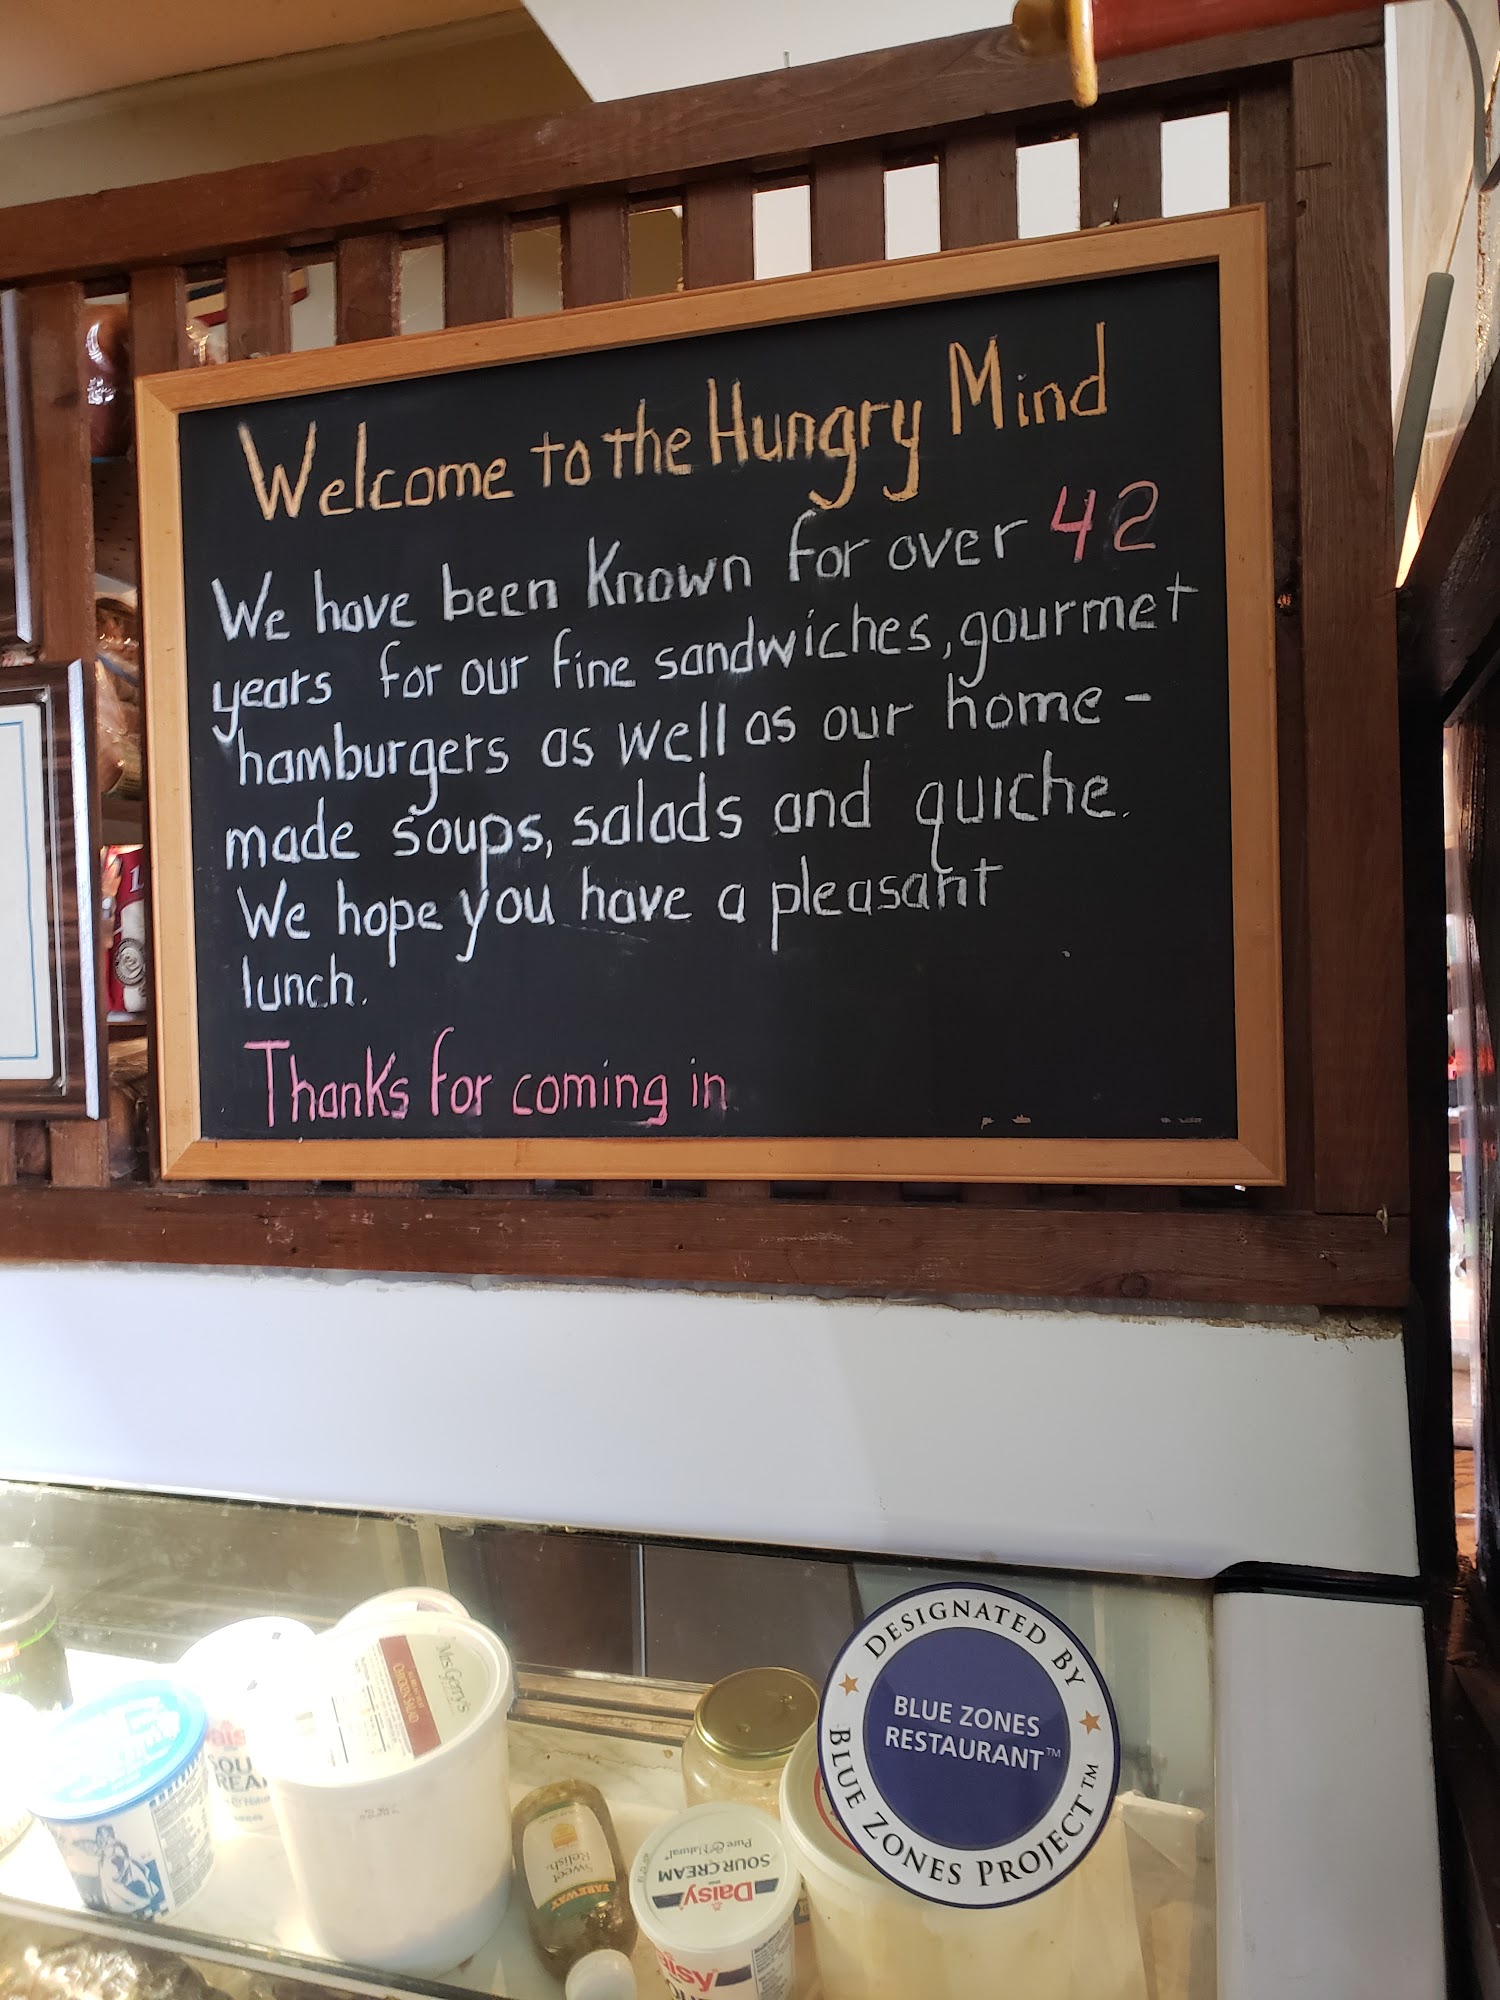 Welcome to the Hungry Mind
We have been Known for over 42
years for our fine sandwiches, gourmet
hamburgers as well as our home-
made soups, salads and quiche.
We hope you have a pleasant
lunch.
Thanks for coming in
DESIGNATED BY
BLUE ZONES
RESTAURANT™
BLUE ZONES PROJECT™
Mrs. Gerry's
CHICKEN SALAD
Sweet
Relish
FAREWAY
Daisy
SOUR CREAM
Pure & Natural